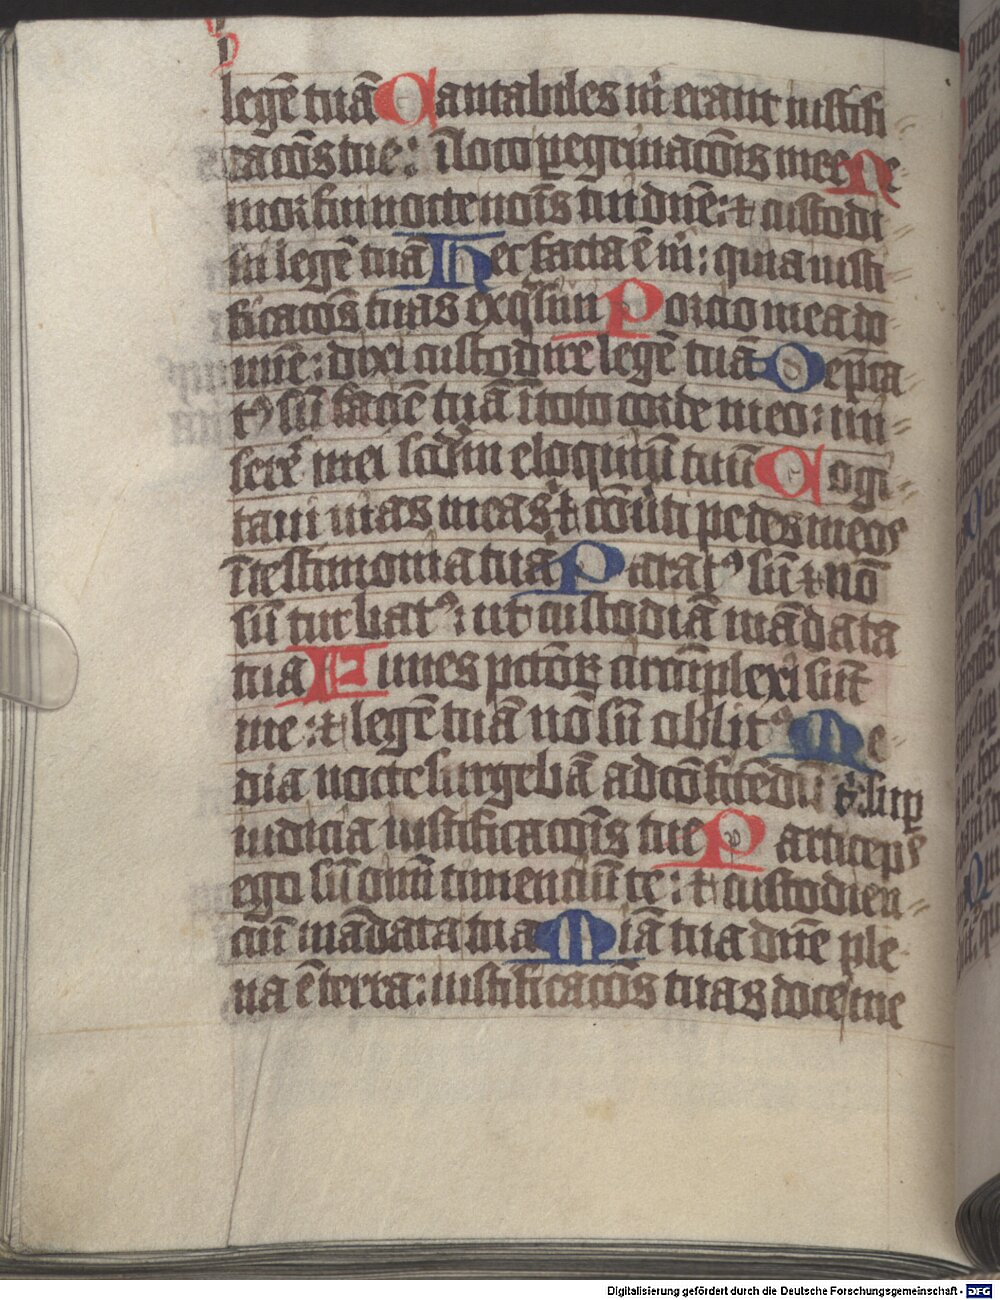 legē tuā Cantabiles m̄ erant iustifi
cacōs tue: ī loco peg̾nacōis mee Me
mor fui nocte noīs tui dn̄e: ⁊ custodi
ui legē tuā Hec facta ē m̄: quia iusti
ficacōs tuas exq̄siui Porcio mea do
mine: dixi custodire legē tuā Dep̄ca
tꝰ sū faciē tuā ī toto corde meo: mi
sere̾ mei scd̄m eloquiū tuū Cogi
taui uias meas ⁊ cōuti pedes meos
ī testimonia tua Paratꝰ sū ⁊ nō
sū turbatꝰ: ut custodiā mādata
tua Funes pctōꝝ circūplexi sūt
me: ⁊ legē tuā nō sū oblitꝰ Me
dia nocte surgebā ad cōfitēdū t̄: suꝑ
iudicia iustificacōis tue Particeps
ego sū oīm timenciū te: ⁊ custodien
ciū mādata tua Mīa tua dn̄e ple
na ē terra: iustificacōs tuas doce me
Digitalisierung gefördert durch die Deutsche Forschungsgemeinschaft - DFG